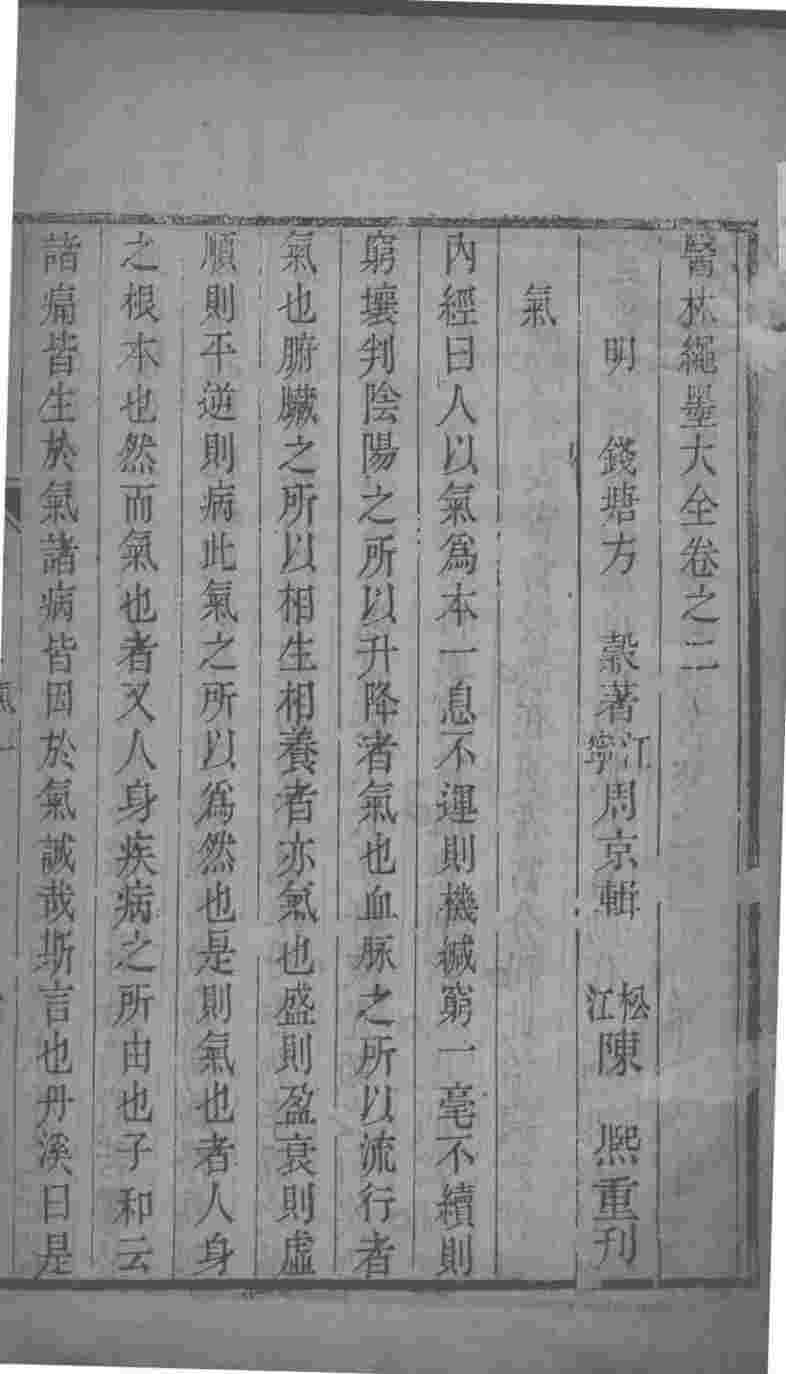 醫林繩墨大全卷之二
明 錢塘方 穀著 江寧周京輯 松江陳 熈重刊
氣
內經曰人以氣爲本一息不運則機緘窮一毫不續則
窮壤判陰陽之所以升降者氣也血脉之所以流行者
氣也腑臟之所以相生相養者亦氣也盛則盈衰則虛
順則平逆則病此氣之所以爲然也是則氣也者人身
之根本也然而氣也者又人身疾病之所由也子和云
諸痛皆生於氣諸病皆因於氣誠哉斯言也丹溪曰是